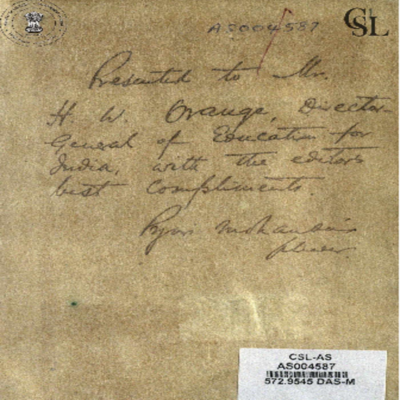 AS004587
CSL
Presented to Mr.
H. W. Orange, Director-
General of Education for
India, with the editor's
best compliments.
CSL-AS
AS004587
572.9545 DAS-M